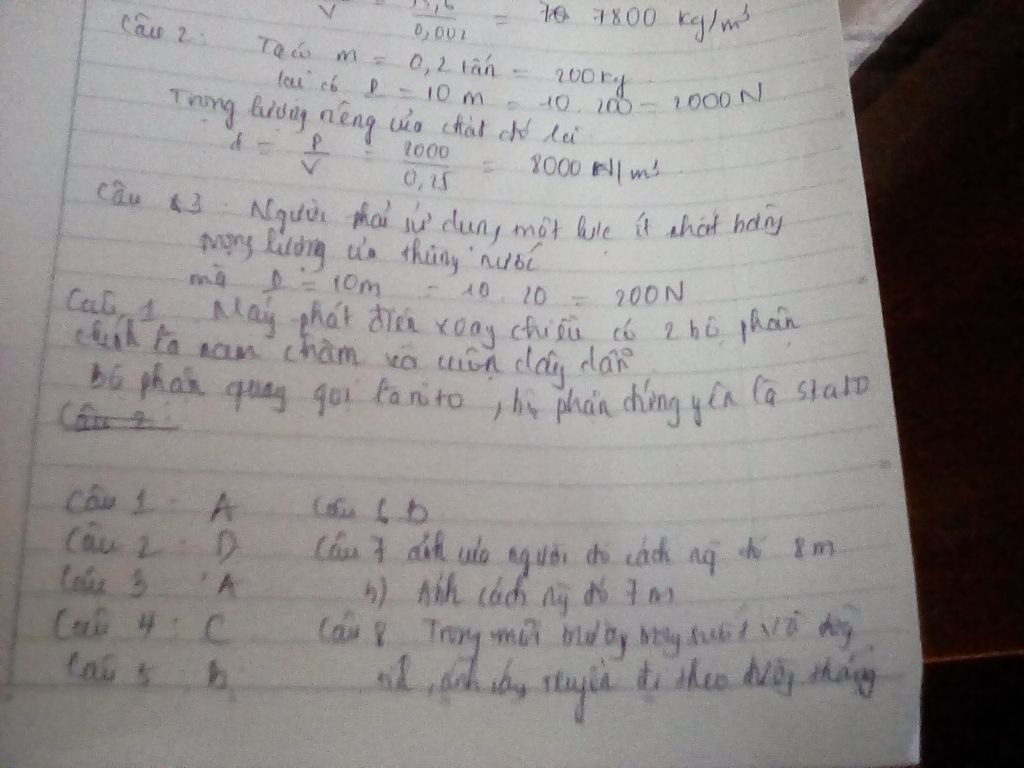 V = 15,6 / 0,002 = 7800 kg/m³
Câu 2: Ta có m = 0,2 tấn = 200 kg
lại có P = 10 m = 10. 200 = 2000 N
Trọng lượng riêng của chất đó là
d = P / V = 2000 / 0,25 = 8000 N/m³
Câu 3: Người phải sử dụng một lực ít nhất bằng
trọng lượng của thùng nước
mà P = 10m = 10. 20 = 200N
Câu 1 Máy phát điện xoay chiều có 2 bộ phận
chính là nam châm và cuộn dây dẫn
bộ phận quay gọi là rôto, bộ phận đứng yên là stato
Câu 2
Câu 1: A Câu 6 D
Câu 2: D Câu 7 ảnh của người đó cách ng đó 8m
Câu 3: A b) Ảnh cách ng đó 7m
Câu 4: C Câu 8 Trong môi trường trong suốt và đồng
Câu 5 b ánh sáng truyền đi theo đường thẳng